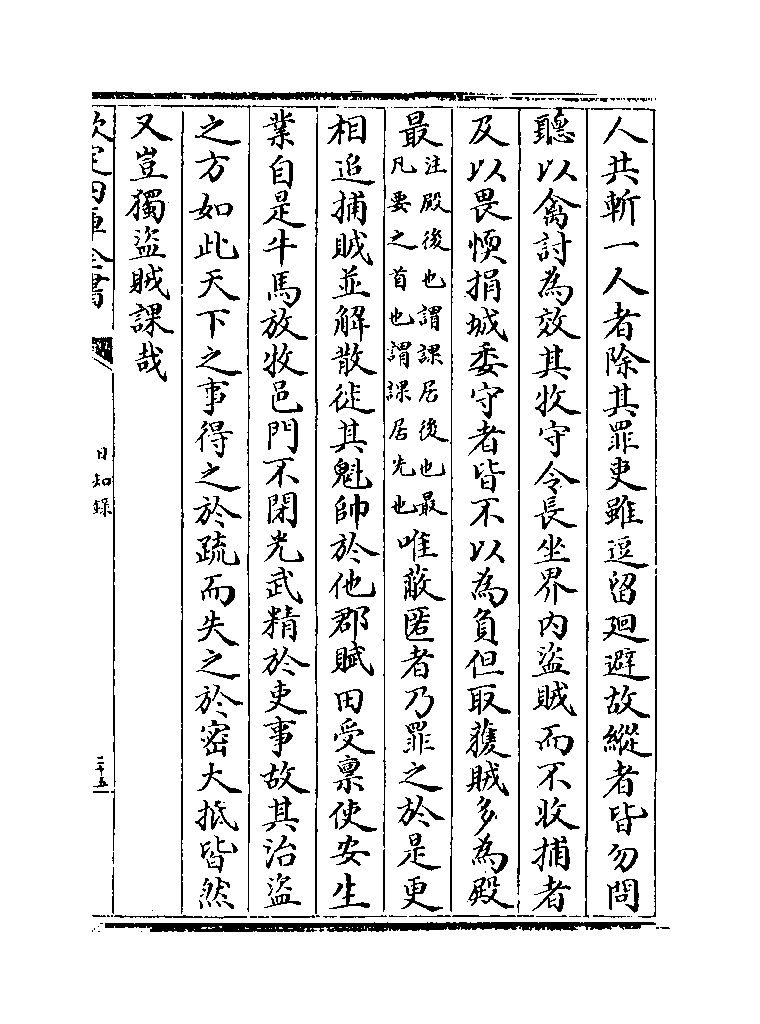 人共斬一人者除其罪吏雖逗留廻避故縱者皆勿問
聽以禽討為效其牧守令長坐界内盜賊而不收捕者
及以畏愞捐城委守者皆不以為負但取獲賊多為殿
最注殿後也謂課居後也最凡要之首也謂課居先也唯蔽匿者乃罪之於是更
相追捕賊並解散徙其魁帥於他郡賦田受禀使安生
業自是牛馬放牧邑門不閉光武精於吏事故其治盜
之方如此天下之事得之於疏而失之於密大抵皆然
又豈獨盜賊課哉
欽定四庫全書
日知錄
二十五